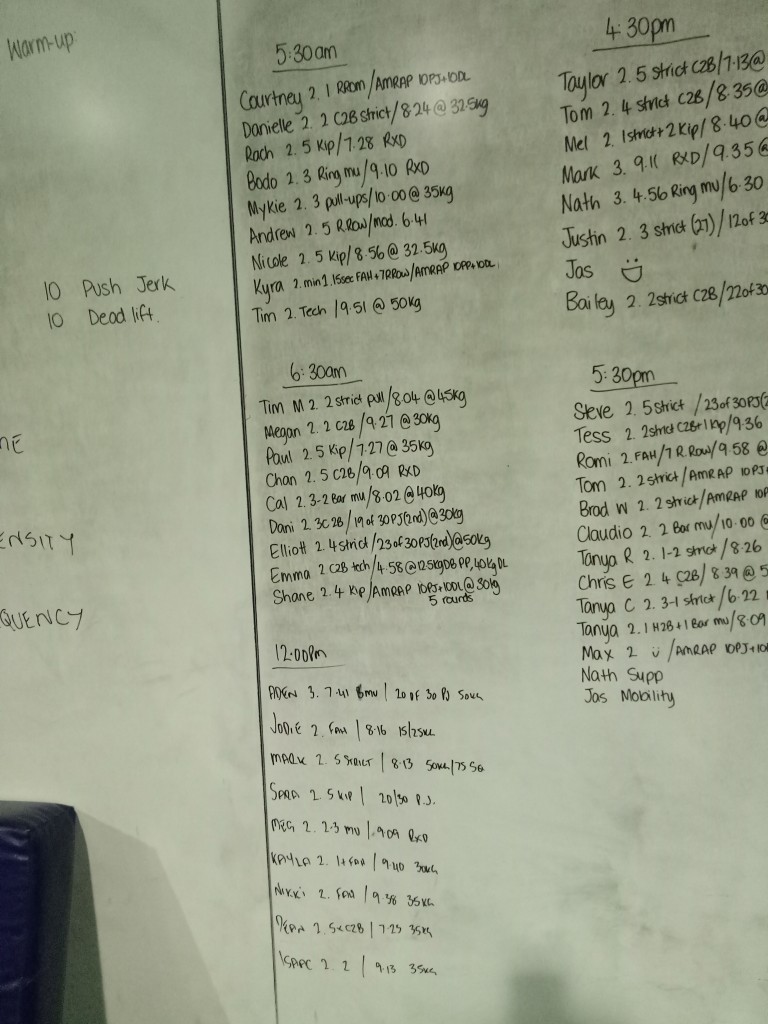 Warm-up:
10 Push Jerk
10 Deadlift.
NE
ENSITY
QUENCY
5:30am
Courtney 2. 1 RROM/AMRAP 10PJ+10DL
Danielle 2. 2 C2B strict/8.24 @ 32.5kg
Rach 2. 5 Kip/7.28 RXD
Bodo 2. 3 Ring mu/9.10 RXD
Mykie 2. 3 pull-ups/10.00 @ 35kg
Andrew 2. 5 R.Row/mod. 6.41
Nicole 2. 5 Kip/8.56 @ 32.5kg
Kyra 2. min1. 15sec FAH+7RRow/AMRAP 10PP+10DL
Tim 2. Tech /9.51 @ 50kg
6:30am
Tim M 2. 2 strict pull/8.04 @ 45kg
Megan 2. 2 C2B /9.27 @ 30kg
Paul 2. 5 Kip/7.27 @ 35kg
Chan 2. 5 C2B/9.09 RXD
Cal 2. 3-2 Bar mu/8.02 @ 40kg
Dani 2. 3C2B/19 of 30PJ(2nd)@30kg
Elliott 2. 4 strict/23 of 30PJ(2nd)@50kg
Emma 2 C2B tech/4.58 @12.5kgDB PP, 40kg DL
Shane 2. 4 Kip/AMRAP 10PJ+10DL @ 30kg
5 rounds
12:00pm
ADEN 3. 7.41 bmu | 20 OF 30 PJ 50KG
JODIE 2. FAH | 8.16 15/25KG
MARK 2. 5 STRICT | 8.13 50KG/75
SARA 2. 5 KIP | 20/30 P.J.
MEG 2. 2-3 MU | 9.09 RXD
KAYLA 2. 1+FAH | 9.40 30KG
NIKKI 2. FAH | 9.38 35KG
DEAN 2. 5xC2B | 7.25 35KG
ISAAC 2. 2 | 9.13 35KG
4:30pm
Taylor 2. 5 strict C2B/7.13@
Tom 2. 4 strict C2B/8.35@
Mel 2. 1strict+2Kip/8.40@
Mark 3. 9.11 RXD/9.35@
Nath 3. 4.56 Ring mu/6.30
Justin 2. 3 strict (27)/12of 30
Jas ☺
Bailey 2. 2strict C2B/22of30
5:30pm
Steve 2. 5strict /23of30PJ(2
Tess 2. 2strict C2B+1kip/9.36
Romi 2. FAH/7 R.Row/9.58 @
Tom 2. 2strict/AMRAP 10PJ+
Brad W 2. 2 strict/AMRAP 10P
Claudio 2. 2 Bar mu/10.00 @
Tanya R 2. 1-2 strict/8.26
Chris E 2 4 C2B/8.39 @ 5
Tanya C 2. 3-1 strict/6.22
Tanya 2. 1 H2B+1 Bar mu/8.09
Max 2 ☺ /AMRAP 10PJ+10
Nath Supp
Jas Mobility